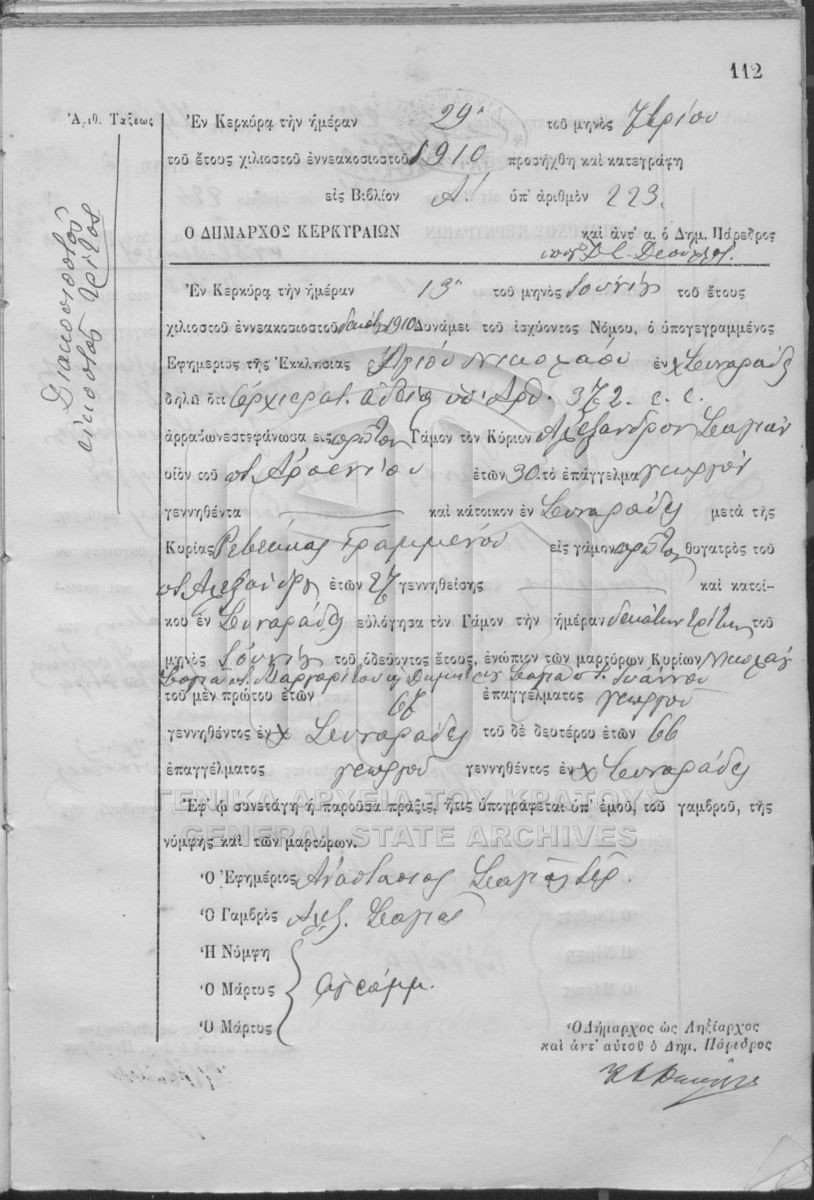 112
Ἀριθ. Τάξεως
Διακοσιοστὸς
εἰκοστὸς τρίτος
Ἐν Κερκύρᾳ τὴν ἡμέραν 29ῃ τοῦ μηνὸς 7βρίου
τοῦ ἔτους χιλιοστοῦ ἐννεακοσιοστοῦ 1910 προσήχθη καὶ κατεγράφη
εἰς Βιβλίον Α! ὑπ' ἀριθμὸν 223.
Ὁ ΔΗΜΑΡΧΟΣ ΚΕΡΚΥΡΑΙΩΝ καὶ ἀντ' α. ὁ Δημ. Πάρεδρος
Ἐν Κερκύρᾳ τὴν ἡμέραν 13ῃ τοῦ μηνὸς Ἰουνίου τοῦ ἔτους
χιλιοστοῦ ἐννεακοσιοστοῦ δεκάτου 1910 Δυνάμει τοῦ ἰσχύοντος Νόμου, ὁ ὑπογεγραμμένος
Ἐφημέριος τῆς Ἐκκλησίας Ἁγίου Νικολάου ἐν χ Συναράδες
δηλῶ ὅτι ἀρχιερατ. ἀδείᾳ ὑπ' Ἀρθ. 372. ε. ε.
ἀρραβωνεστεφάνωσα εἰς πρῶτον Γάμον τὸν Κύριον Ἀλέξανδρον Σαγιᾶν
υἱὸν τοῦ ποτ. Ἀρσενίου ἐτῶν 30. τὸ ἐπάγγελμα γεωργὸν
γεννηθέντα καὶ κάτοικον ἐν Συναράδες μετὰ τῆς
Κυρίας Ρεβέκκας Γραμμένου εἰς γάμον πρῶτον θυγατρὸς τοῦ
ποτ. Ἀλεξάνδρου ἐτῶν 27 γεννηθείσης καὶ κατοί-
κου ἐν Συναράδες εὐλόγησα τὸν Γάμον τὴν ἡμέραν δεκάτην τρίτην τοῦ
μηνὸς Ἰουνίου τοῦ ὁδεύοντος ἔτους, ἐνώπιον τῶν μαρτύρων Κυρίων Νικολάου
Σαγιᾶ ποτ. Μαργαρίτου Σαγιᾶ Ἰωάννου
τοῦ μὲν πρώτου ἐτῶν 67 ἐπαγγέλματος γεωργοῦ
γεννηθέντος ἐν χ Συναράδες τοῦ δὲ δευτέρου ἐτῶν 66
ἐπαγγέλματος γεωργοῦ γεννηθέντος ἐν χ Συναράδες
ΓΕΝΙΚΑ ΑΡΧΕΙΑ ΤΟΥ ΚΡΑΤΟΥΣ
Ἐφ' ᾧ συνετάγη ἡ παροῦσα πρᾶξις, ἥτις ὑπογράφεται ὑπ' ἐμοῦ, τοῦ γαμβροῦ, τῆς
GENERAL STATE ARCHIVES
νύμφης καὶ τῶν μαρτύρων.
Ὁ Ἐφημέριος Ἀναστάσιος Σαγιᾶς Ἱερ.
Ὁ Γαμβρὸς Ἀλεξ. Σαγιᾶς
Ἡ Νύμφη
Ὁ Μάρτυς ἀγράμμ.
Ὁ Μάρτυς
Ὁ Δήμαρχος ὡς Ληξίαρχος
καὶ ἀντ' αὐτοῦ ὁ Δημ. Πάρεδρος